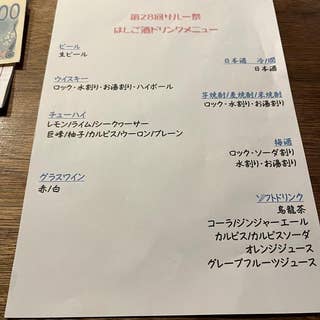 第28回サルー祭
はしご酒ドリンクメニュー
ビール
生ビール
ウイスキー
ロック・水割り・お湯割り・ハイボール
チューハイ
レモン/ライム/シークヮーサー
巨峰/柚子/カルピス/ウーロン/プレーン
グラスワイン
赤/白
日本酒 冷/燗
日本酒
芋焼酎/麦焼酎/米焼酎
ロック・水割り・お湯割り
梅酒
ロック・ソーダ割り
水割り・お湯割り
ソフトドリンク
烏龍茶
コーラ/ジンジャーエール
カルピス/カルピスソーダ
オレンジジュース
グレープフルーツジュース